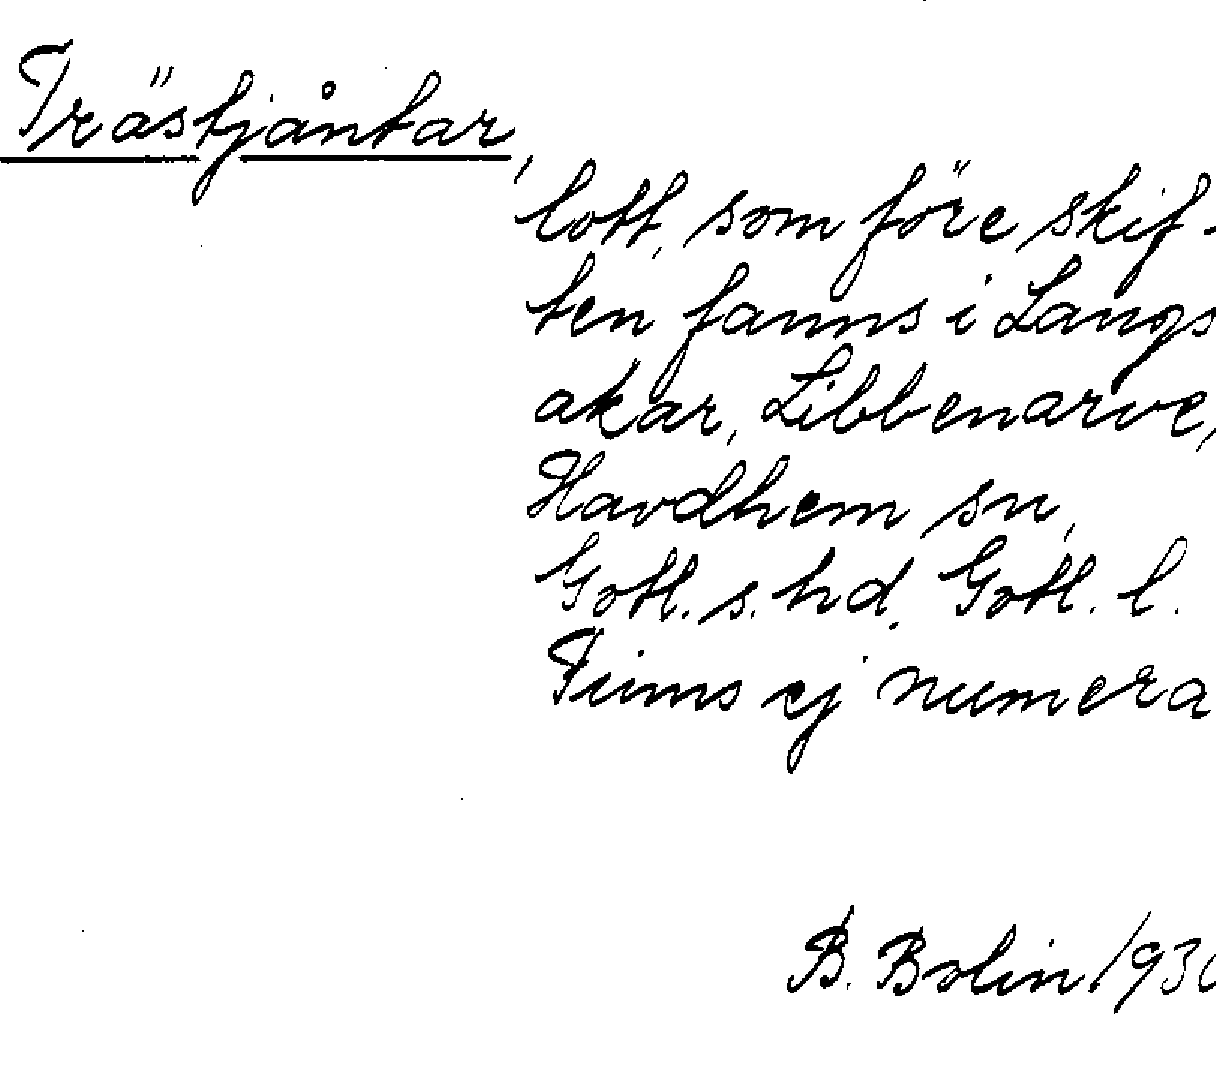 Trästjåntar,
lott, som före skif-
ten fanns i Langs
akar, Libbenarve,
Havdhem sn,
Gotl. s. hd. Gotl. l.
Finns ej numera
B. Bolin 1930